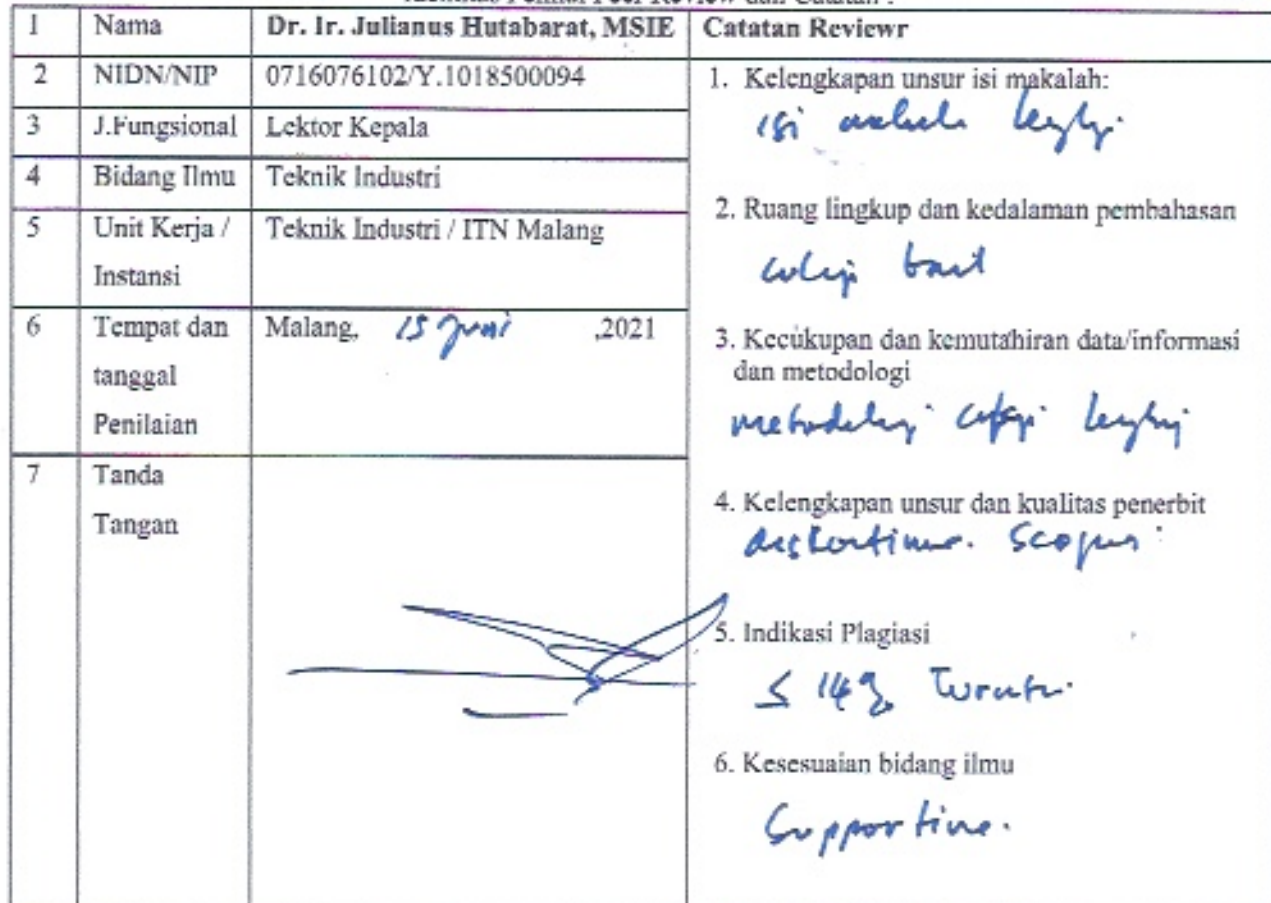 1 Nama Dr. Ir. Julianus Hutabarat, MSIE
2 NIDN/NIP 0716076102/Y.1018500094
3 J.Fungsional Lektor Kepala
4 Bidang Ilmu Teknik Industri
5 Unit Kerja / Teknik Industri / ITN Malang
Instansi
6 Tempat dan Malang, 15 Juni ,2021
tanggal
Penilaian
7 Tanda
Tangan
Catatan Reviewr
1. Kelengkapan unsur isi makalah:
isi
2. Ruang lingkup dan kedalaman pembahasan
baik
3. Kecukupan dan kemutahiran data/informasi
dan metodologi
metodologi
4. Kelengkapan unsur dan kualitas penerbit
Scopus
5. Indikasi Plagiasi
≤ 14%
6. Kesesuaian bidang ilmu
Supportive.